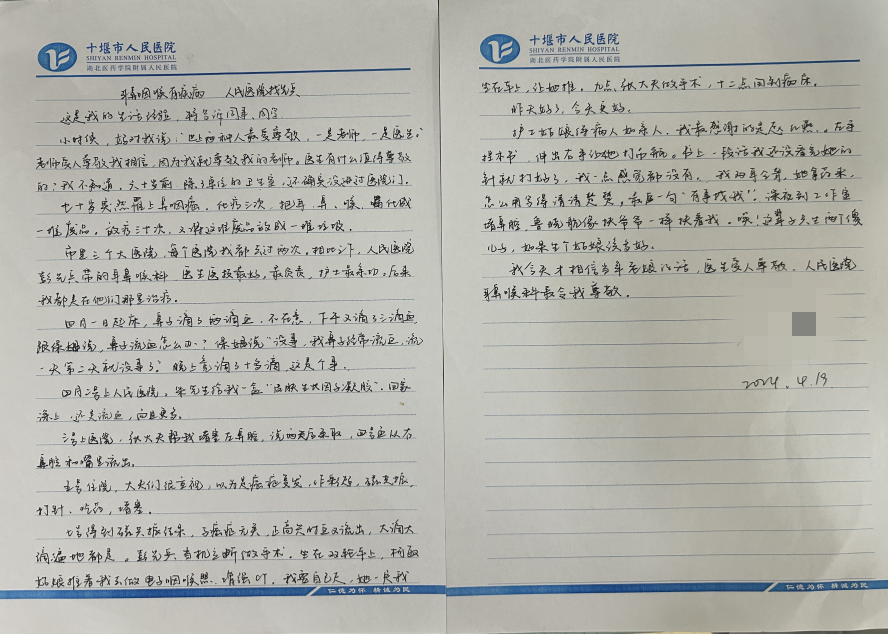 十堰市人民医院
SHIYAN RENMIN HOSPITAL
湖北医药学院附属人民医院
耳鼻咽喉有疾病 人民医院找先兵
这是我的生活经验，将告诉同事、同学
小时候，妈对我说：世上两种人最受尊敬，一是老师，一是医生。
老师受人尊敬我相信，因为我就尊敬我的老师。医生有什么值得尊敬
的？我不知道，六十岁前，除了单位的卫生室，还确实没进过医院门。
七十岁突然罹上鼻咽癌，化疗三次，把耳、鼻、喉、化成
一堆废品。放疗三十次，又将这堆废品放成一堆垃圾。
市里三个大医院，每个医院我都去过两次。相比之下，人民医院
彭先兵带的耳鼻喉科 医生医技最好，最负责，护士最亲切。后来
我都是在他们那里治疗。
四月一日起床，鼻子滴了两滴血，不在意，下午又滴了三滴血
跟保姆说，鼻子流血怎么办？保姆说“没事，我鼻子经常流血，流
一天第二天就没事了。”晚上竟滴了十多滴，这是个事。
四月二号上人民医院，朱先生给我一盒“ 生长因子凝胶”。回家
涂上，还是流血，而且更多。
三号上医院，张大夫帮我堵塞左鼻腔，说两天后来取，四号血从右
鼻腔和嘴里流出。
五号住院，大夫们很重视，以为是癌症复发，作彩超，磁共振，
打针、吃药，堵塞。
七号得到磁共振结果，与癌症无关，正高兴时血又流出，大滴大
滴遍地都是。彭先兵当机立断做手术。坐在双轮车上，
姑娘推着我去做电子咽喉照、增强CT，我要自己走，她一定我
仁德为怀 精诚为民
十堰市人民医院
SHIYAN RENMIN HOSPITAL
湖北医药学院附属人民医院
坐在车上，让她推。九点，张大夫做手术，十二点回到病床。
昨天好了，今天更好。
护士姑娘待病人如亲人，我最感谢的是赵 熙。左手
捏本书，伸出右手让她打 针。书上一段话我还没看完她的
针就打好了，我一点感觉都没有。我双耳全聋，她拿药来，
怎么用写得清清楚楚，最后一句“有事找我”！深夜到工作室
堵鼻腔，鲁晓航像扶爷爷一样扶着我。唉！这辈子只生两个傻
儿子，如果生个姑娘该多好。
我今天才相信当年老娘的话，医生受人尊敬，人民医院
耳鼻喉科最令我尊敬。
2024.4.19
仁德为怀 精诚为民